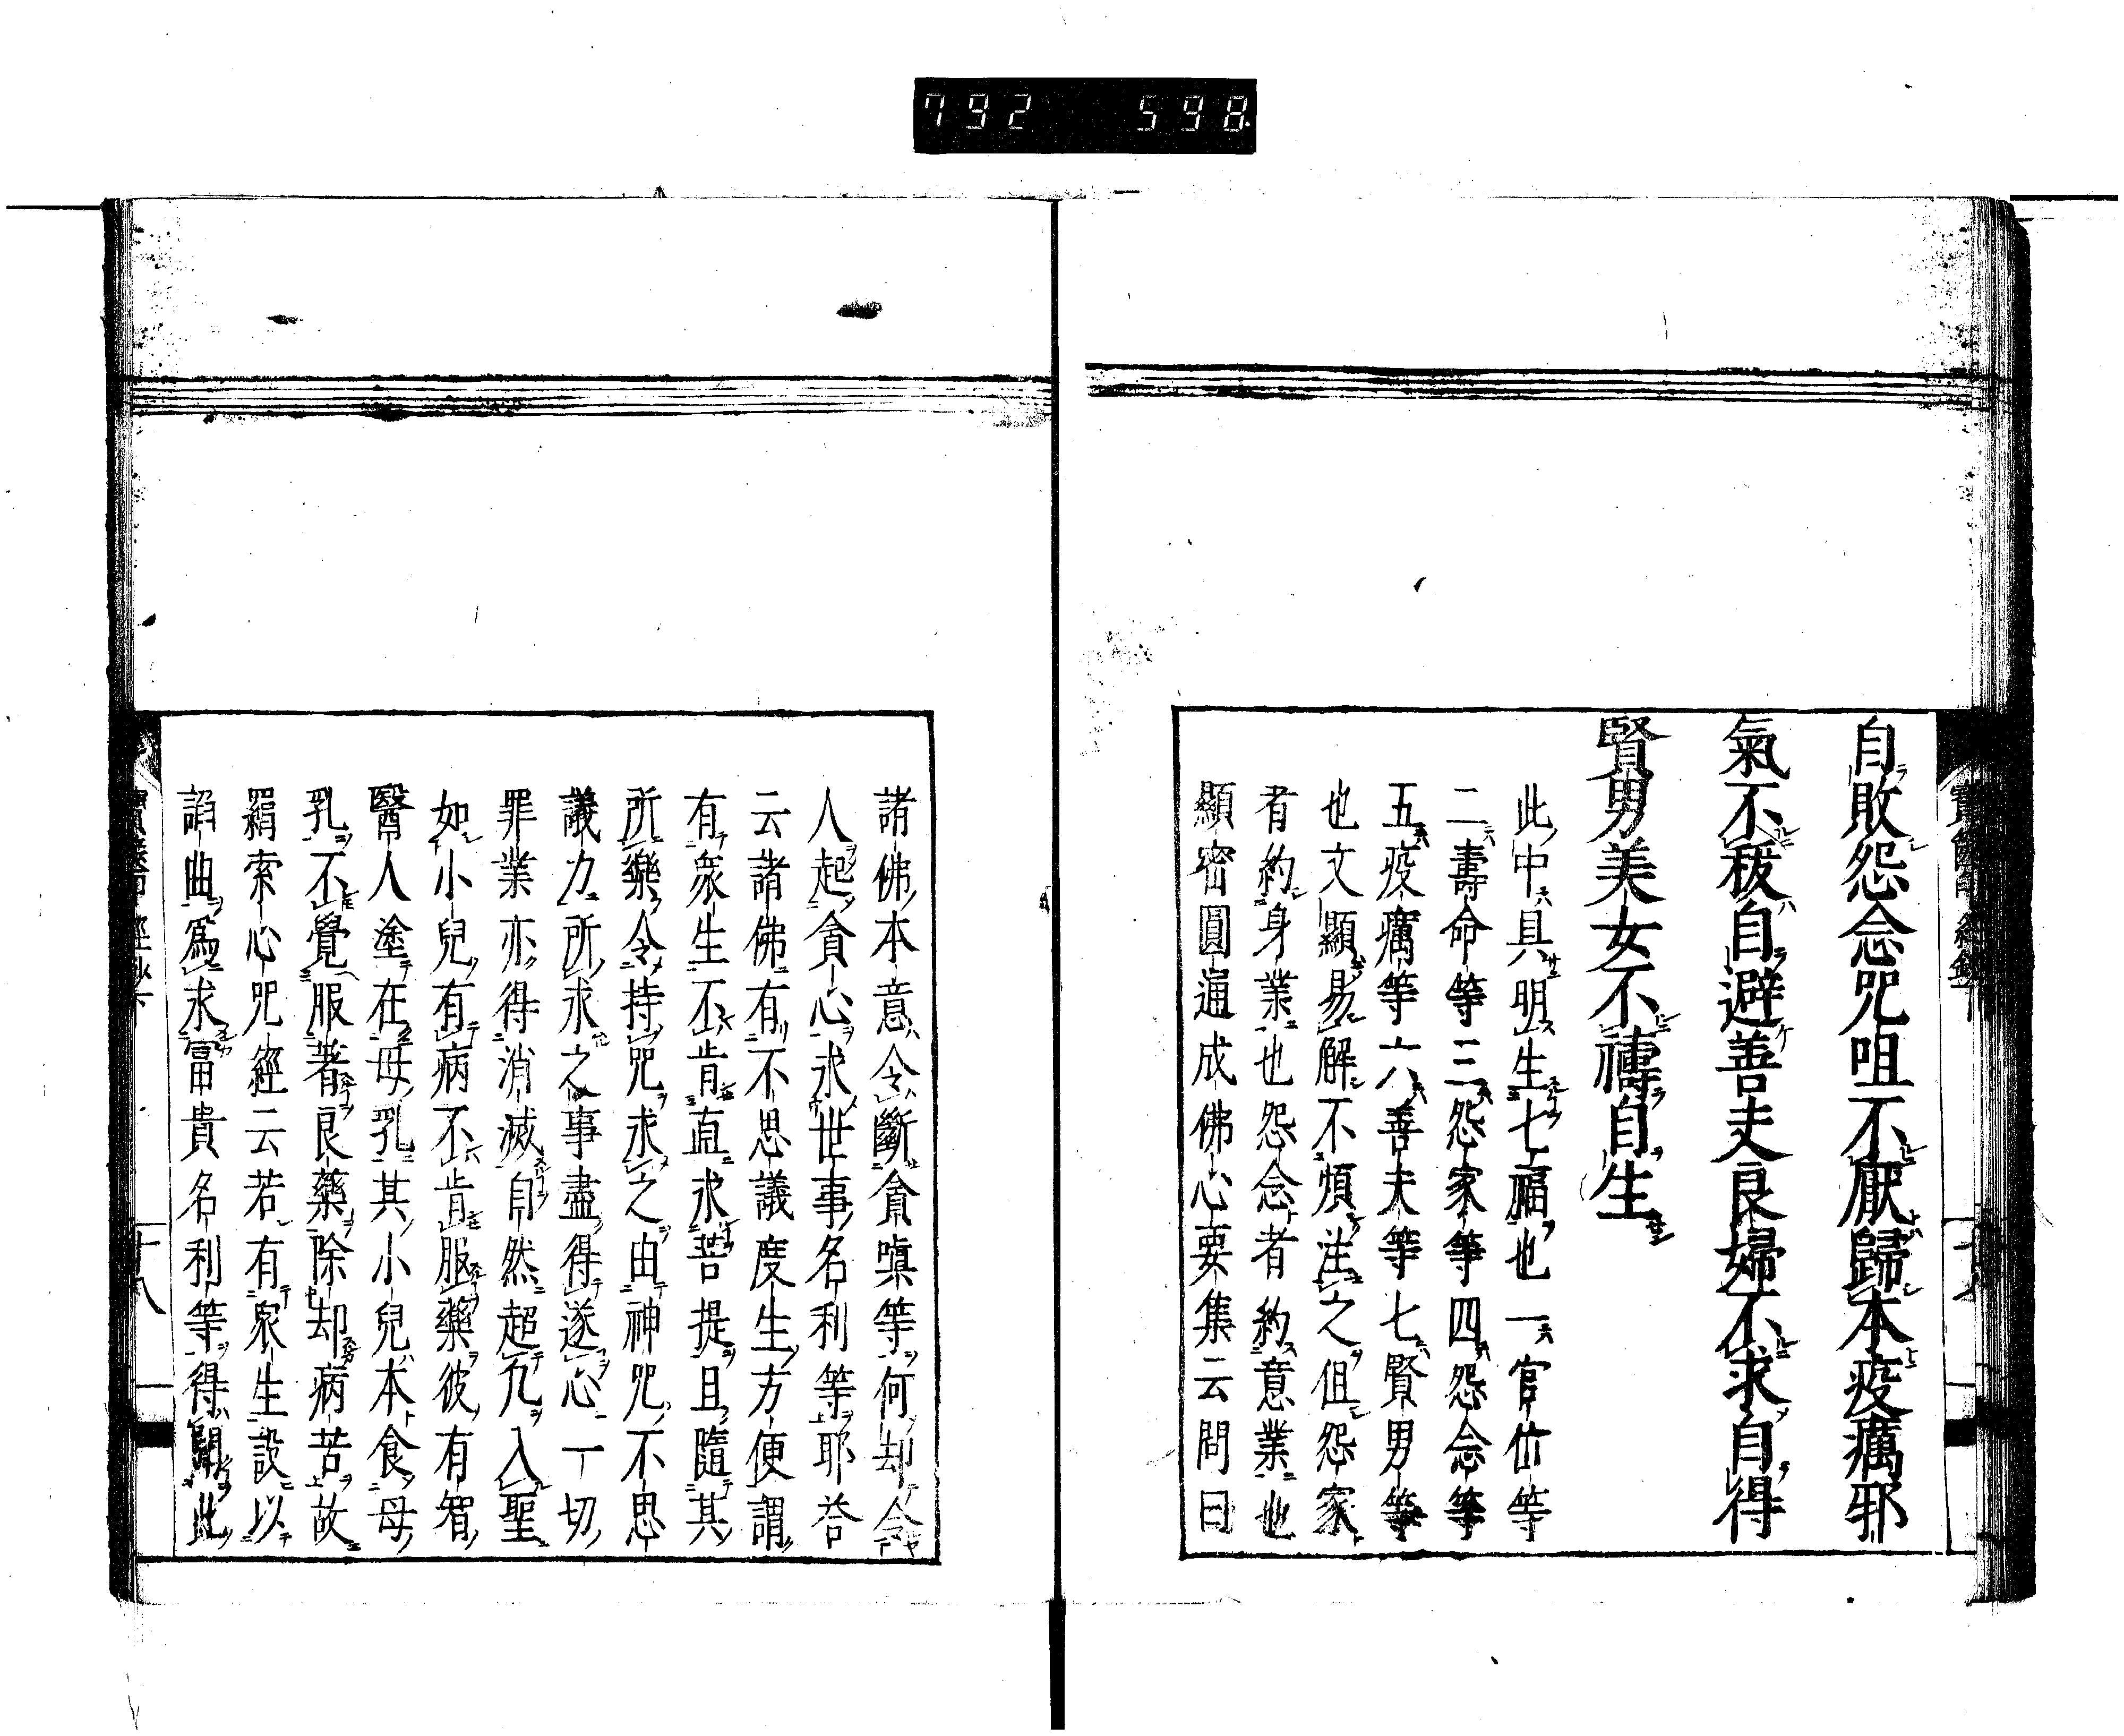 792 598
自敗怨念咒咀不厭歸本疫癘邪
氣不秡自避善夫良婦不求自得
賢男美女不禱自生
此中具明生七福也一官位等
二壽命等三怨家等四怨念等
五疫癘等六善夫等七賢男等
也文顯易解不煩注之但怨家
者約身業也怨念者約意業也
顯密圓通成佛心要集云問曰
諸佛本意令斷貪嗔等何却令
人起貪心求世事名利等耶荅
云諸佛有不思議度生方便謂
有衆生不肯直求菩提且隨其
所樂令持咒求之由神咒不思
議力所求之事盡得遂心一切
罪業亦得消滅自然超凡入聖
如小兒有病不肯服藥彼有智
醫人塗在母乳其小兒本食母
乳不覺服著良藥除却病苦故
羂索心咒經云若有衆生設以
諂曲爲求富貴名利等得聞此
十八